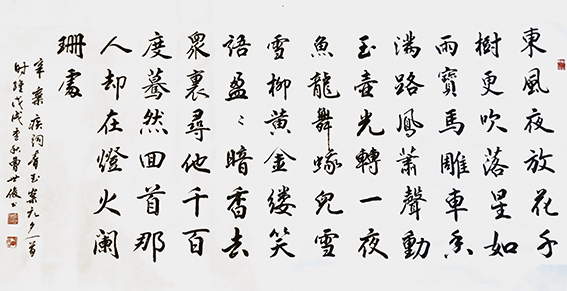 東風夜放花千
樹更吹落星如
雨寶馬雕車香
满路鳳蕭聲動
玉壺光轉一夜
魚龍舞蛾兒雪
雪柳黄金縷笑
語盈〻暗香去
眾裏尋他千百
度驀然回首那
人却在燈火闌
珊處
辛棄疾詞青玉案元夕一首
时維戊戌季秋曹世俊